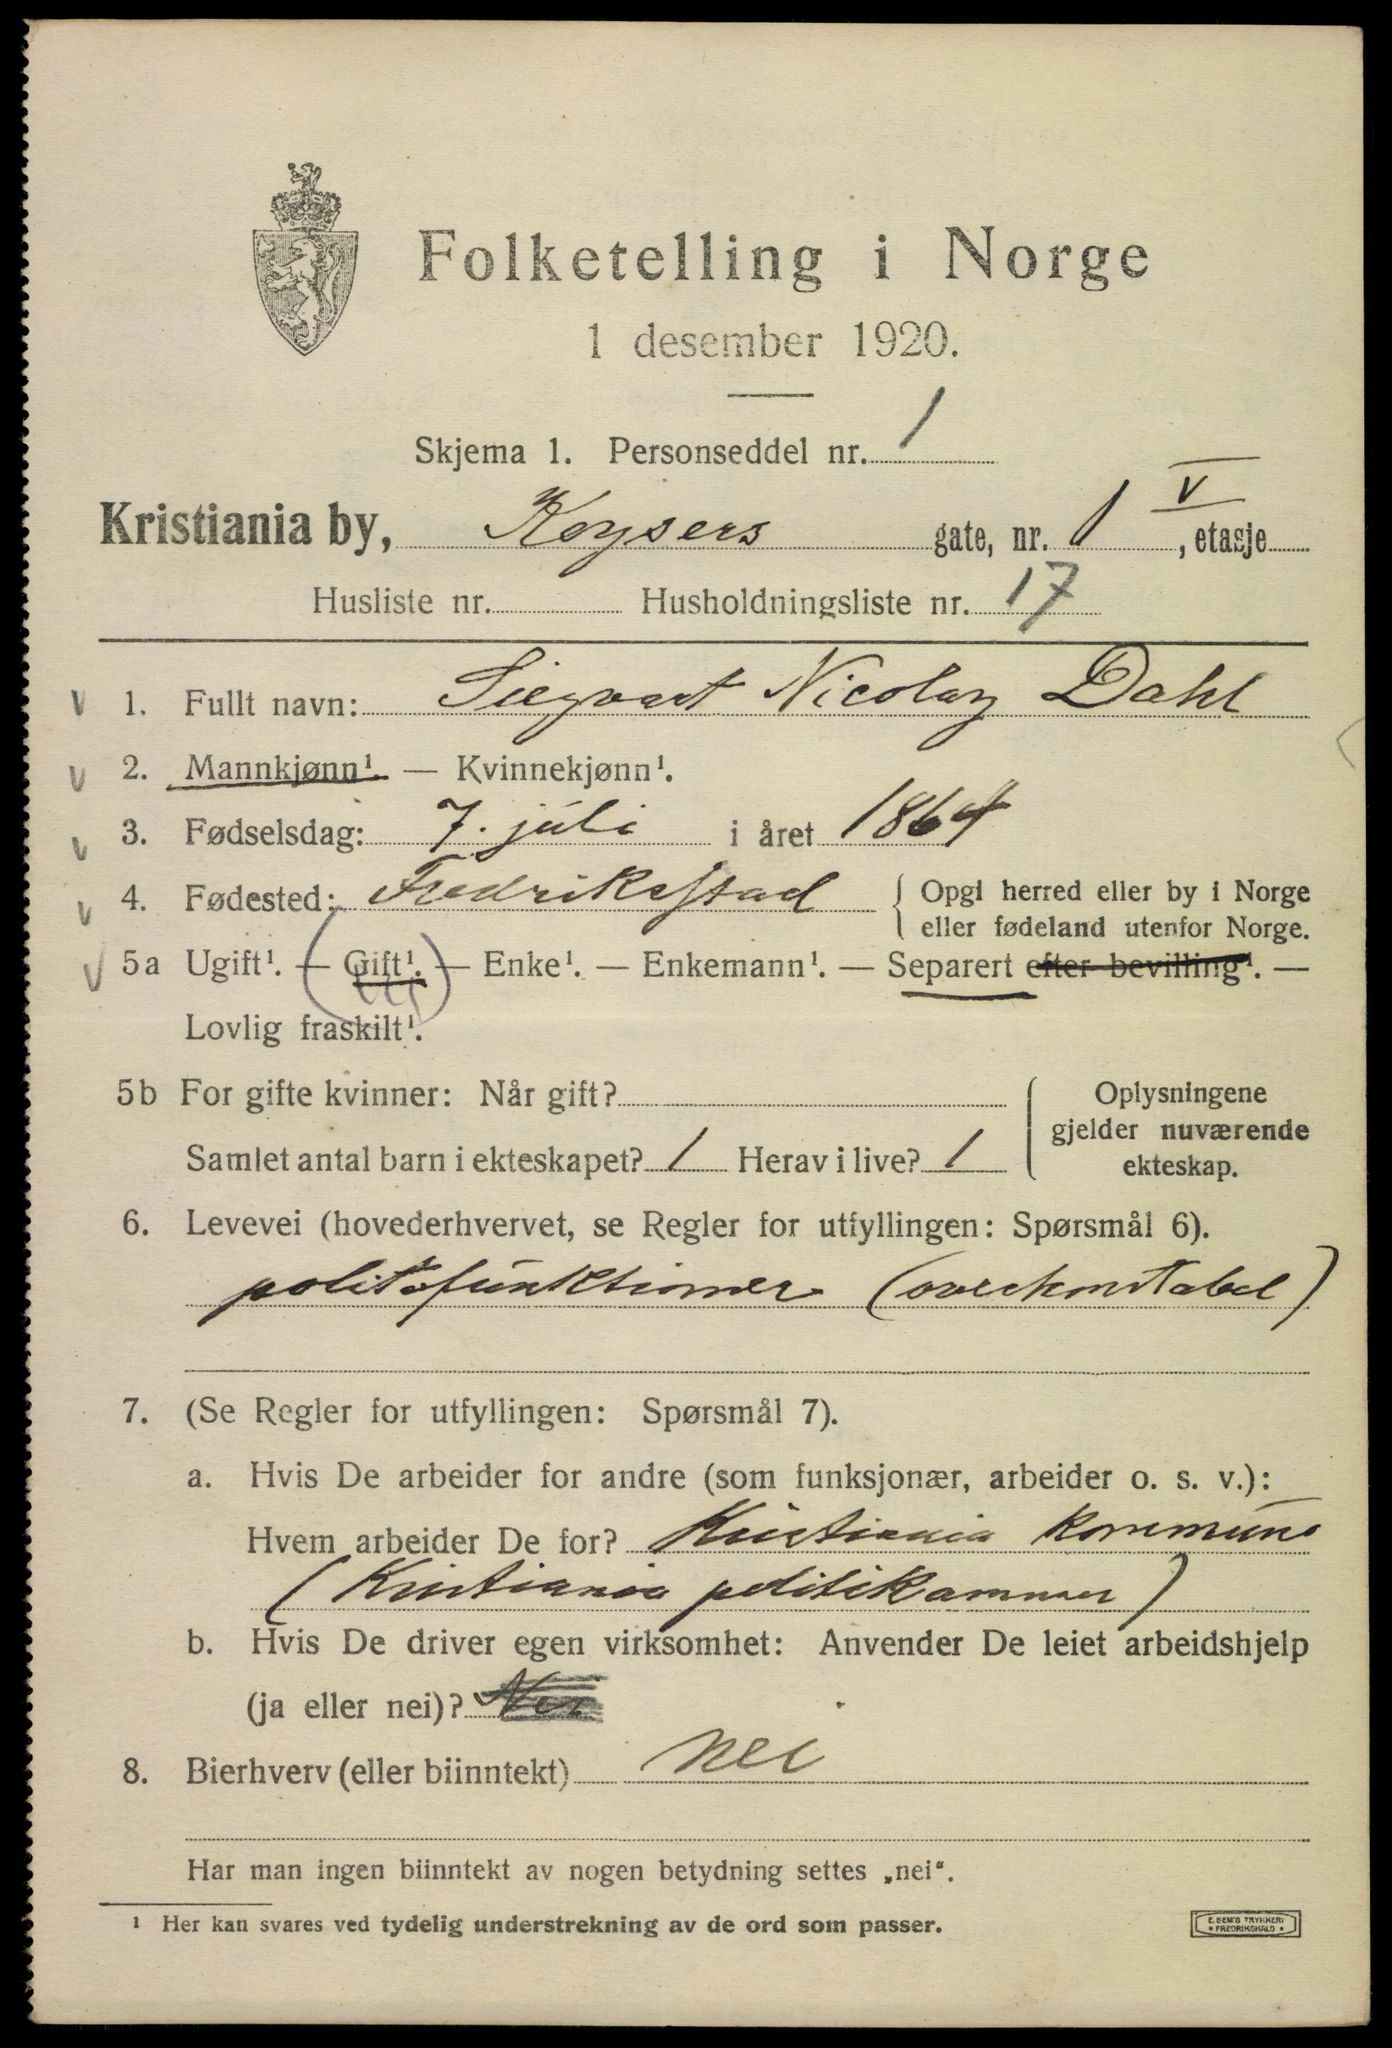 Folketelling i Norge
1 desember 1920.
Skjema 1. Personseddel nr. 1
Kristiania by, Keysers gate, nr. 1 V, etasje
Husliste nr. Husholdningsliste nr. 17
v 1. Fullt navn: Siegvart Nicolay Dahl
v 2. Mannkjønn¹. — Kvinnekjønn¹.
v 3. Fødselsdag: 7. júli i året 1864
v 4. Fødested: Fredrikstad { Opgi herred eller by i Norge
eller fødeland utenfor Norge.
v 5a Ugift¹. — (Gift¹.) — Enke¹. — Enkemann¹. — Separert efter bevilling¹. —
Lovlig fraskilt¹.
5b For gifte kvinner: Når gift? { Oplysningene
gjelder nuværende
Samlet antal barn i ekteskapet? 1 Herav i live? 1 ekteskap.
6. Levevei (hovederhvervet, se Regler for utfyllingen: Spørsmål 6).
politifunktionær (overkonstabel)
7. (Se Regler for utfyllingen: Spørsmål 7).
a. Hvis De arbeider for andre (som funksjonær, arbeider o. s. v.):
Hvem arbeider De for? Kristiania kommune
(Kristiania politikammer)
b. Hvis De driver egen virksomhet: Anvender De leiet arbeidshjelp
(ja eller nei)? Nei
8. Bierhverv (eller biinntekt) nei
Har man ingen biinntekt av nogen betydning settes „nei“.
¹ Her kan svares ved tydelig understrekning av de ord som passer.
E. SEM'S TRYKKERI
• FREDRIKSHALD •